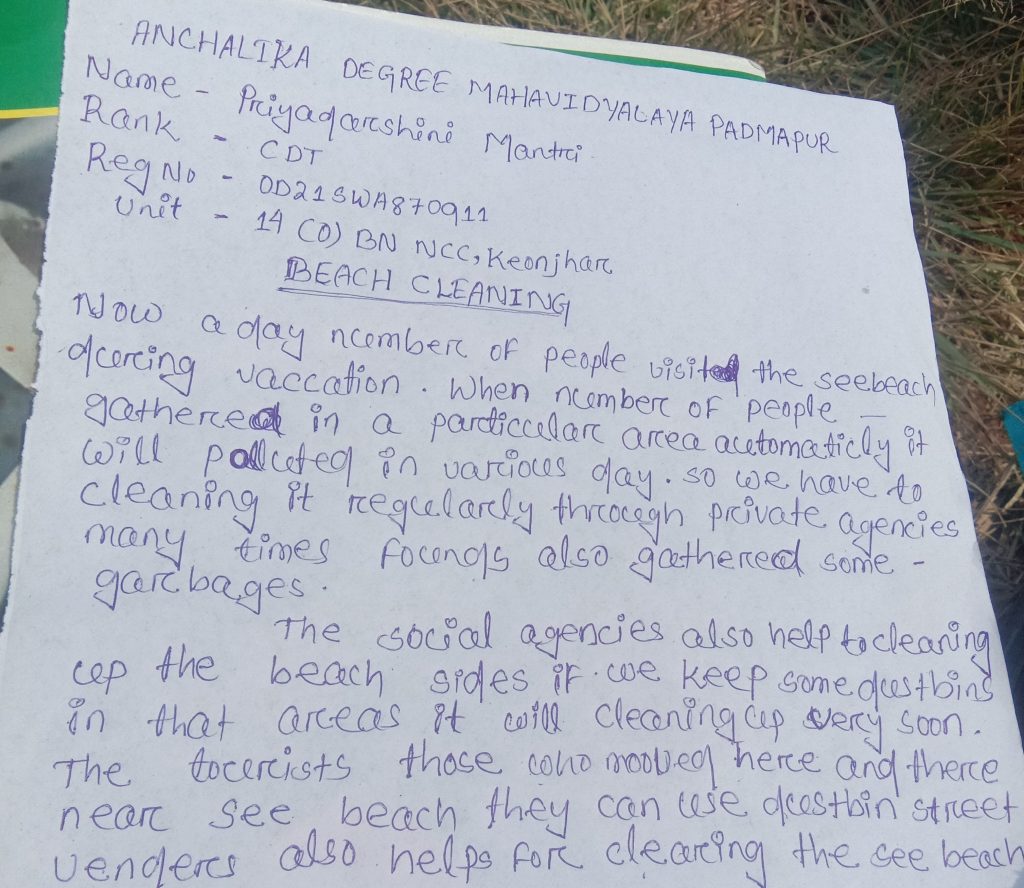 ANCHALIKA DEGREE MAHAVIDYALAYA PADMAPUR
Name - Priyadarshini Mantri
Rank - CDT
Reg No - OD21SWA870911
Unit - 14 (O) BN NCC, Keonjhar
BEACH CLEANING
Now a day number of people visited the seebeach
during vaccation. When number of people -
gathered in a particular area automaticly it
will polluted in various day. so we have to
cleaning it regularly through private agencies
many times founds also gathered some -
garbages.
The social agencies also help to cleaning
up the beach sides if we keep some dustbins
in that areas it will cleaning up very soon.
The tourists those who mooved here and there
near see beach they can use dustbin street
venders also helps for clearing the see beach